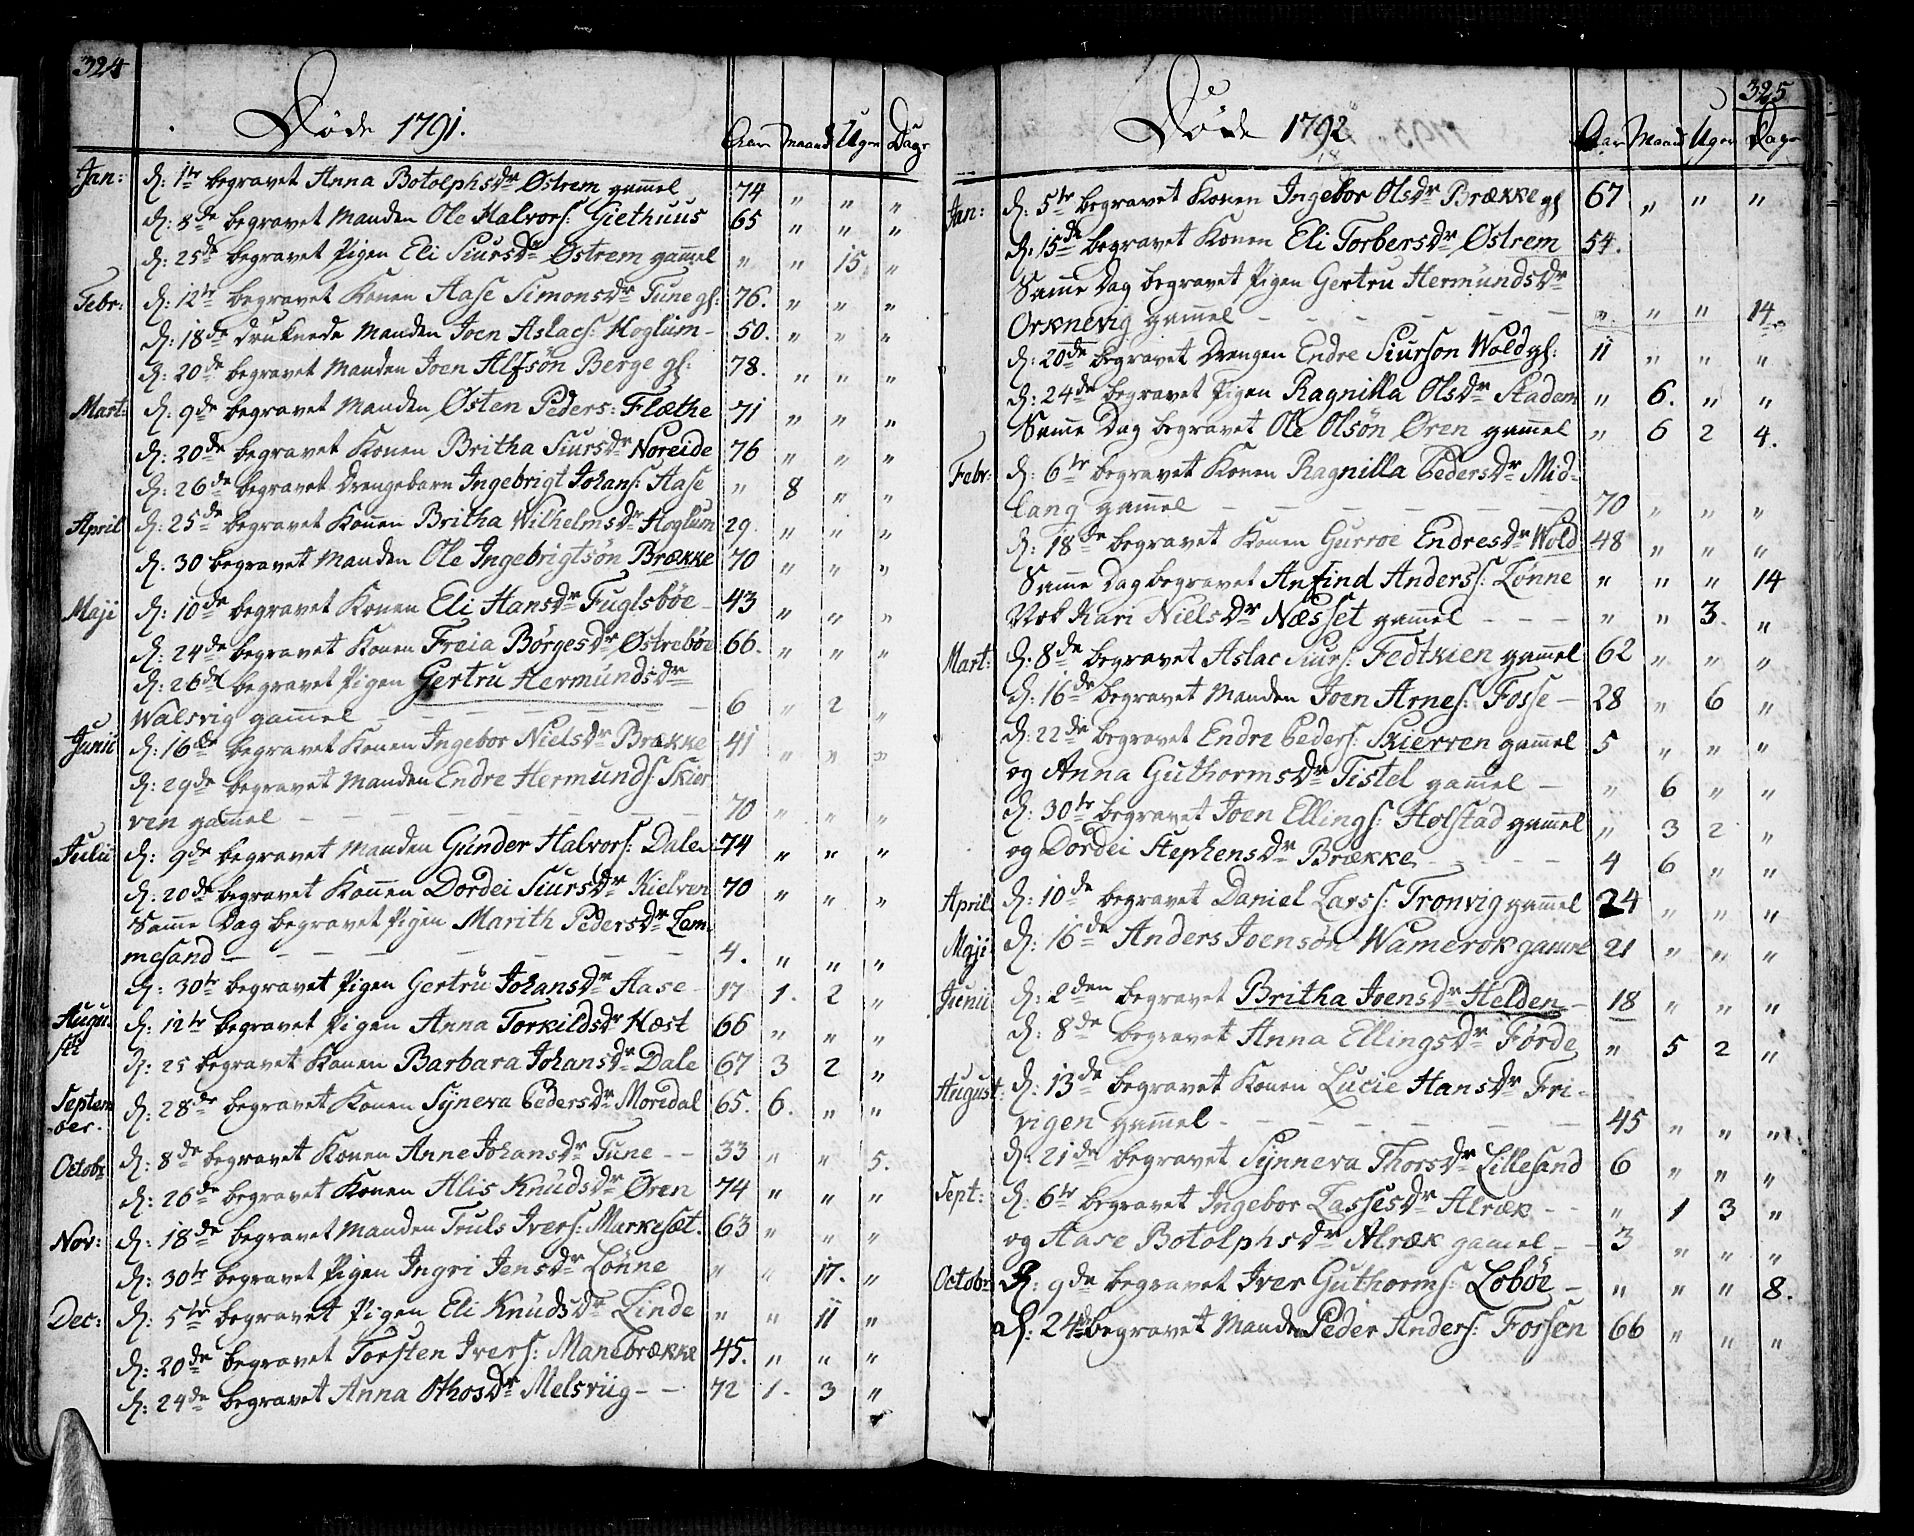 324
Døde 1791.
Aar Maand Ugen Dage
Jan: d: 1te begravet Anna Botolphsdr Østrem gammel 74 " " "
d: 8de begravet Manden Ole Halvors: Giethuus 65 " " "
d: 25de begravet Pigen Eli Siursdr Østrem gammel " " 15 "
Febr: d: 12te begravet Konen Aase Simonsdr Tune gl: 76. " " "
d: 18de druknede Manden Joen Aslacs: Hoglum – 50. " " "
d: 20de begravet Manden Joen Alfsøn Berge gl: 78. " " "
Mart: d: 9de begravet Manden Østen Peders: Flæthe 71 " " "
d: 20de begravet Konen Britha Siursdr Noreide 76 " " "
d: 26de begravet Drengebarn Ingebrigt Johans: Aase " 8 " "
April d: 25de begravet Konen Britha Wilhelmsdr Hoglum 29. " " "
d: 30 begravet Manden Ole Ingebrigtsøn Brække 70 " " "
Maji d: 10de begravet Konen Eli Hansdr Fuglsbøe – 43 " " "
d: 24de begravet Konen Freia Børgesdr Østrebøe 66. " " "
d: 26de begravet Pigen Gertru Hermundsdr
Walsvig gammel – – – – – – 6 " 2 "
Junii d: 16de begravet Konen Ingebor Nielsdr Brække 41 " " "
d: 29de begravet Manden Endre Hermunds: Skier
ven gammel – – – – – – – 70 " " "
Julii d: 9de begravet Manden Gunder Halvors: Dale 74 " " "
d: 20de begravet Konen Dordei Siursdr Kielven 70 " " "
Samme Dag begravet Pigen Marith Pedersdr Lam
mesand – – – – – – – 4. " " "
d: 30te begravet Pigen Gertru Johansdr Aase – 17 1. 2 "
Augu-
sti d: 12te begravet Pigen Anna Torkildsdr Hæst 66 " " "
d: 25 begravet Konen Barbara Johansdr Dale 67 3 2 "
Septem
ber. d: 28de begravet Konen Syneva Pedersdr Moredal 65. 6. " "
Octobr d: 8de begravet Konen Anne Johansdr Tune – – 33 " " 5.
d: 26de begravet Konen Alis Knudsdr Øren 74 " " "
Nov: d: 18de begravet Manden Truls Ivers: Markeset. 63 " " "
d: 30te begravet Pigen Ingri Jensdr Lønne " " 17. "
Dec: d: 5te begravet Pigen Eli Knudsdr Linde " " 11 "
d: 20de begravet Torsten Ivers: Manebrække 45. " " "
d: 24de begravet Anna Othosdr Melsviig – – 72 1. 3 "
325
Døde 1792
Aar Maand Ugen Dage
Jan: d: 5te begravet Konen Ingebor Olsdr Brække gl 67 " " "
d: 15de begravet Konen Eli Torbersdr Østrem 54.
Samme Dag begravet Pigen Gertru Hermundsdr
Orknevig gammel – – – – – – " " " 14.
d: 20de begravet Drengen Endre Siurson Wold gl: 11 " " "
d: 24de begravet Pigen Ragnilla Olsdr Stadem " 6. " "
Samme Dag begravet Ole Olsøn Øren gammel " 6 2 4.
Febr: d: 6te begravet Konen Ragnilla Pedersdr Mid-
lang gammel – – – – – – 70 " " "
d: 18de begravet Konen Gurroe Endresdr Wold 48 " " "
Samme Dag begravet Anfind Anderss: Lønne " " " 14
Nok Kari Nielsdr Næsset gammel – – – " " 3. "
Mart: d: 8de begravet Aslac Siurs: Fedtkien gammel 62 " " "
d: 16de begravet Manden Joen Arnes: Fosse – 28 " 6 "
d: 22de begravet Endre Peders: Skierven gammel 5 " " "
og Anna Guthormsdr Tistel gammel – " 6 " "
d: 30te begravet Joen Ellings: Holstad gammel " 3 2 "
og Dordei Stephensdr Brække – – – – 4 6 " "
April d: 10de begravet Daniel Larss: Tronvig gammel 24 " " "
Maji d: 16de Anders Joensøn Wamerok gamme 21 " " "
Junii d: 2den begravet Britha Joensdr Helden – 18 " " "
d: 8de begravet Anna Ellingsdr Førde " 5 2 "
August: d: 13de begravet Konen Lucie Hansdr Fri-
vigen gammel – – – – – – 45 " " "
d: 21de begravet Synneva Thorsdr Lillesand 6 " " "
Sept: d: 6te begravet Ingebor Lassesdr Alræk – – " 1 3 "
og Aase Botolphsdr Alræk gamel – – 3 " " "
Octobr d: 9de begravet Iver Guthorms: Lobøe – " " " 8.
d: 24de begravet Manden Peder Anders: Forsen 66 " " "